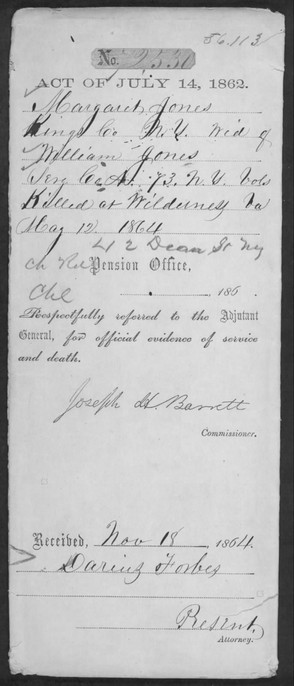 56.113
No. 72530
ACT OF JULY 14, 1862.
Margaret Jones
Kings Co N.Y. Wid of
William Jones
Co A. 73. N.Y. Vols
Killed at Wilderness Va
May 12 1864
42 Dean St Ny
Pension Office,
, 186 .
Respectfully referred to the Adjutant
General, for official evidence of service
and death.
Joseph H. Barrett
Commissioner.
Received, Nov 18 1864.
Darius Forbes
Present,
Attorney.